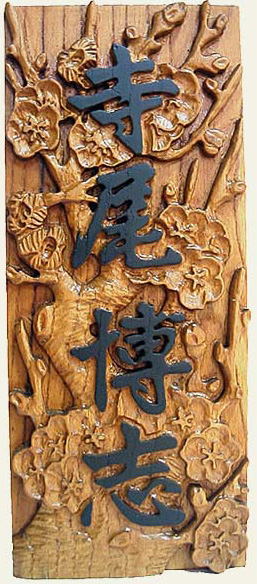 寺尾博志